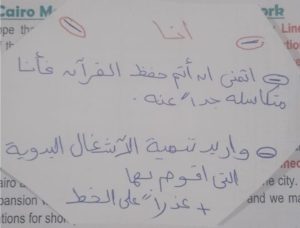 Cairo M
rk
ope tha
Line
of th
انا
اتمنى ان أتم حفظ القرآن فأنا
متكاسله جداً عنه.
واريد تنمية الآشغال اليدوية
التى اقوم بها
+ عذراً على الخط
airo
the city.
pansion
and we ma
tions for shor